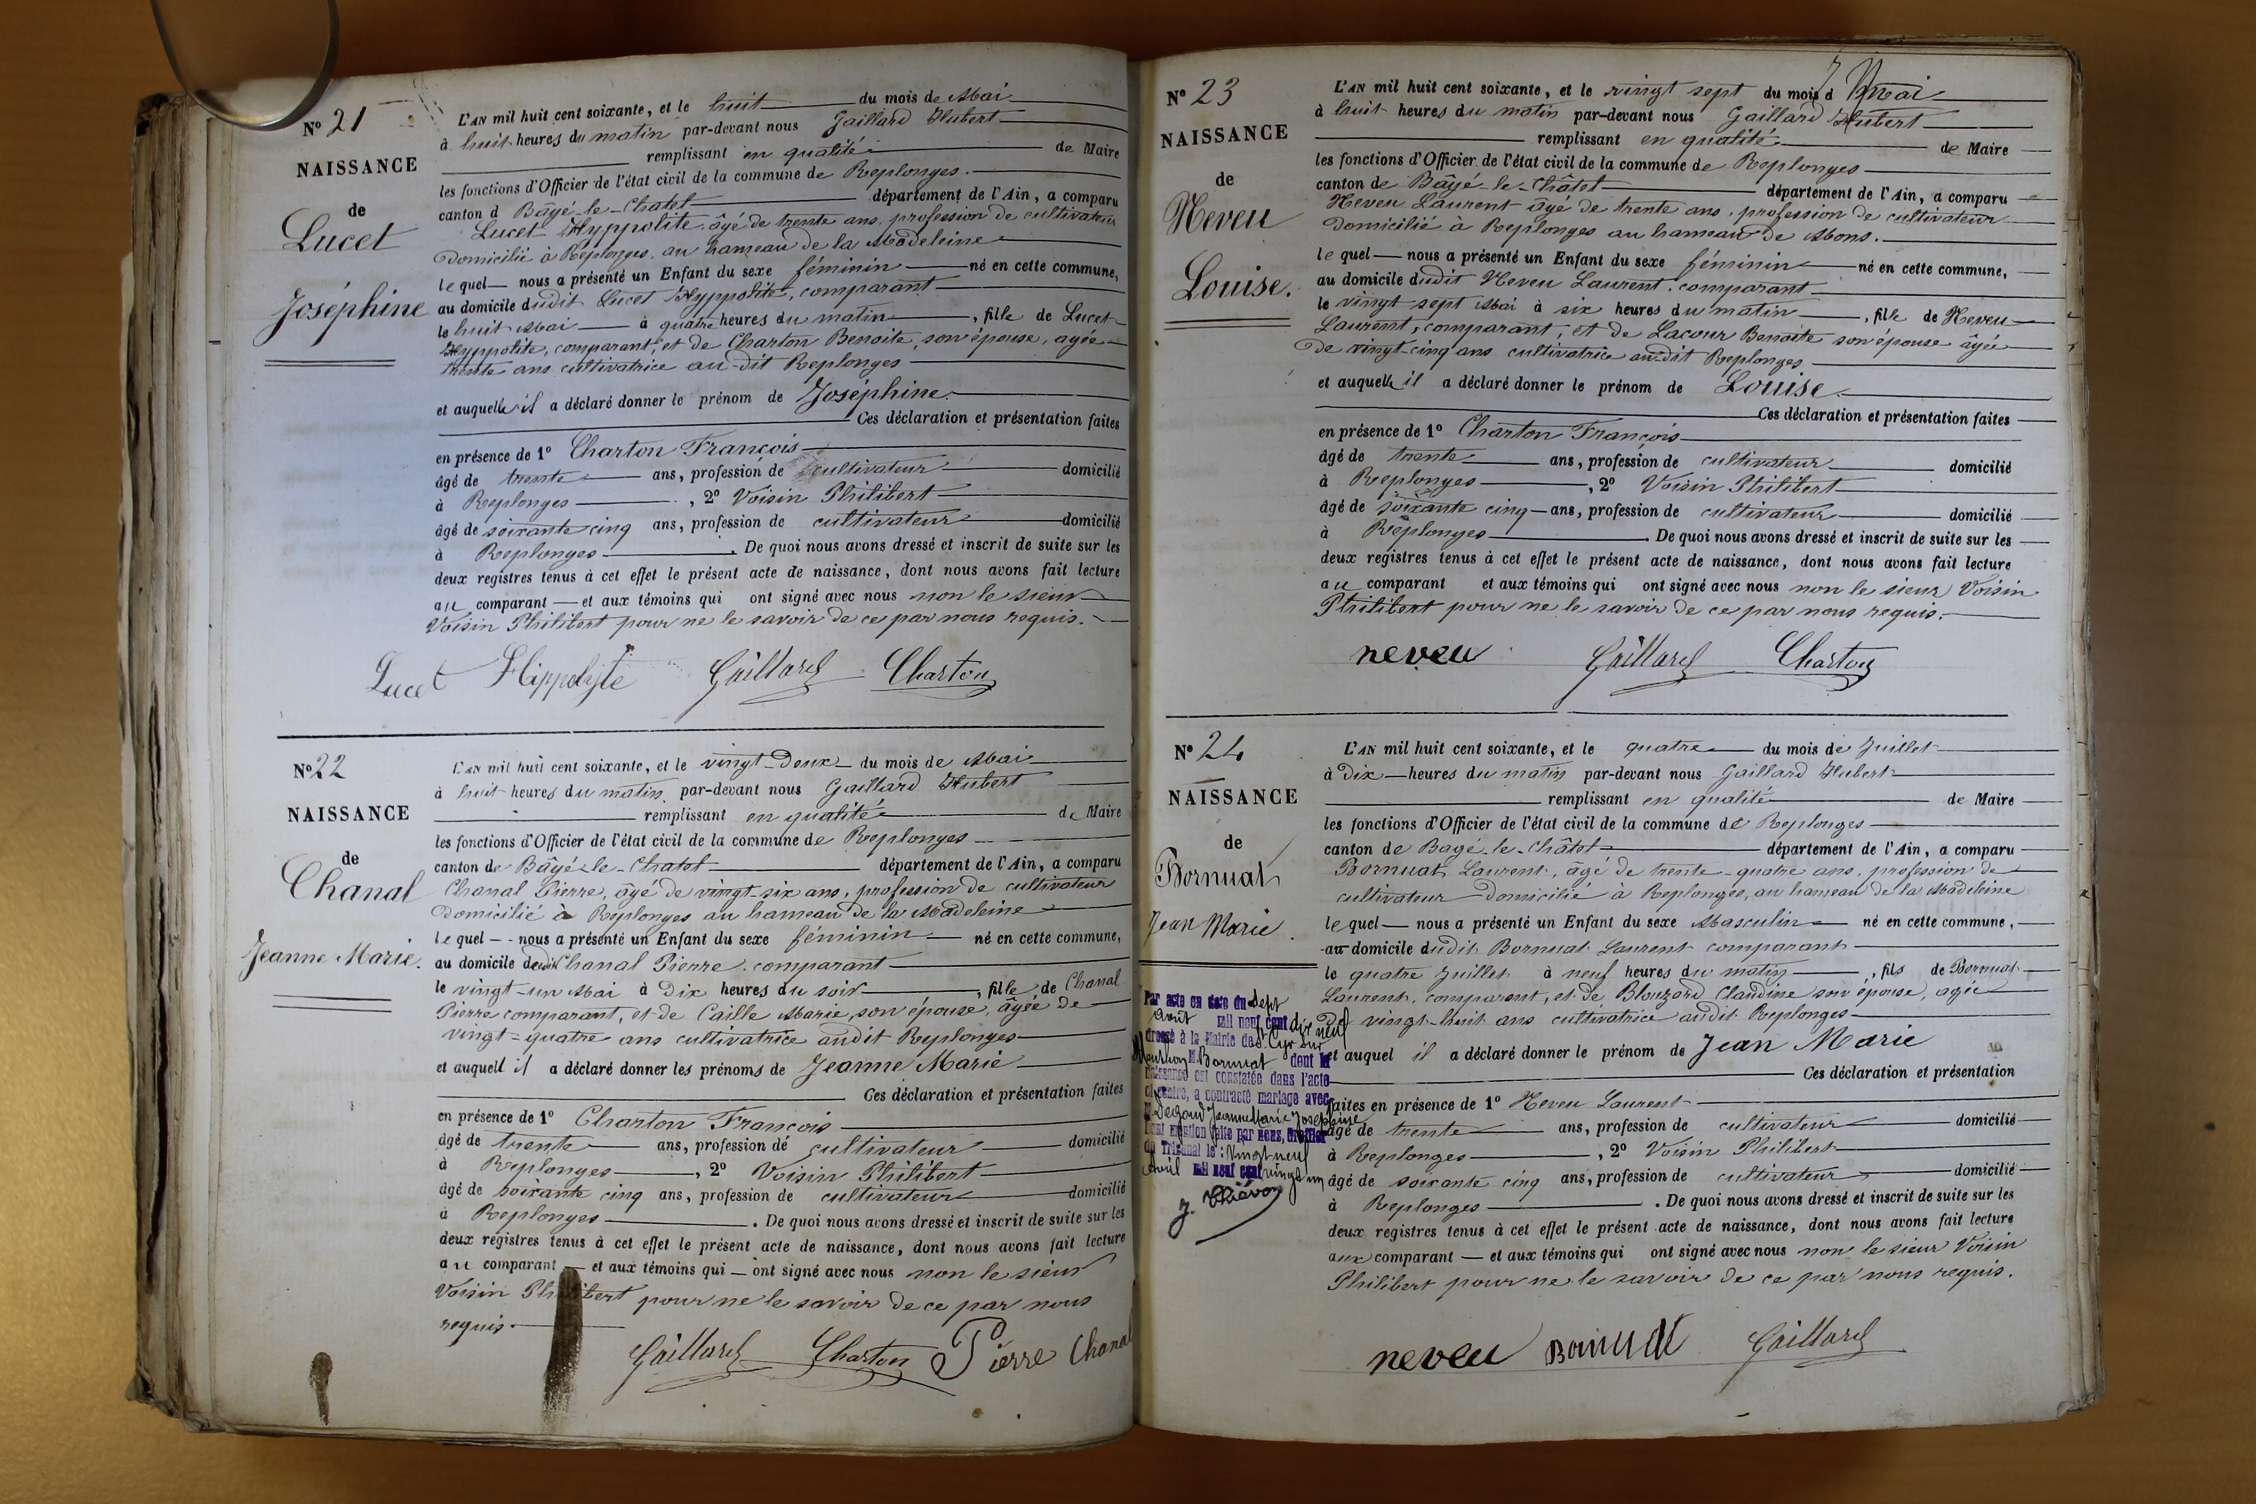 Nº 21
NAISSANCE
de
Lucet
Joséphine
L'AN mil huit cent soixante, et le huit du mois de Mai
à huit heures du matin par-devant nous Gaillard Hubert
remplissant en qualité de Maire
les fonctions d'Officier de l'état civil de la commune de Replonges.
canton d Bâgé-le-Chatel département de l'Ain, a comparu
Lucet Hyppolite, âgé de trente ans, profession de cultivateur
domicilié à Replonges, au hameau de la Madeleine
lequel nous a présenté un Enfant du sexe féminin né en cette commune,
au domicile dudit Lucet Hyppolite, comparant
le huit Mai à quatre heures du matin, fille de Lucet
Hyppolite, comparant, et de Charton Benoite, son épouse, agée
trente ans cultivatrice au-dit Replonges
et auquelle il a déclaré donner le prénom de Joséphine.
Ces déclaration et présentation faites
en présence de 1º Charton François
âgé de trente ans, profession de cultivateur domicilié
à Replonges, 2º Voisin Philibert
âgé de soixante cinq ans, profession de cultivateur domicilié
à Replonges. De quoi nous avons dressé et inscrit de suite sur les
deux registres tenus à cet effet le présent acte de naissance, dont nous avons fait lecture
au comparant et aux témoins qui ont signé avec nous non le sieur
Voisin Philibert pour ne le savoir de ce par nous requis.
Lucet Hippolyte Gaillard Charton
Nº 22
NAISSANCE
de
Chanal
Jeanne Marie.
L'AN mil huit cent soixante, et le vingt-deux du mois de Mai
à huit heures du matin par-devant nous Gaillard Hubert
remplissant en qualité de Maire
les fonctions d'Officier de l'état civil de la commune de Replonges
canton de Bâgé-le-Chatel département de l'Ain, a comparu
Chanal Pierre, âgé de vingt-six ans, profession de cultivateur
domicilié à Replonges au hameau de la Madeleine
lequel nous a présenté un Enfant du sexe féminin né en cette commune,
au domicile dudit Chanal Pierre comparant
le vingt-un Mai à dix heures du soir, fille de Chanal
Pierre comparant, et de Caille Marie, son épouse, âgée de
vingt-quatre ans cultivatrice audit Replonges
et auquell il a déclaré donner les prénoms de Jeanne Marie
Ces déclaration et présentation faites
en présence de 1º Charton François
âgé de trente ans, profession de cultivateur domicilié
à Replonges, 2º Voisin Philibert
âgé de soixante cinq ans, profession de cultivateur domicilié
à Replonges. De quoi nous avons dressé et inscrit de suite sur les
deux registres tenus à cet effet le présent acte de naissance, dont nous avons fait lecture
au comparant et aux témoins qui ont signé avec nous non le sieur
Voisin Philibert pour ne le savoir de ce par nous
requis.
Gaillard Charton Pierre Chanal
Nº 23
NAISSANCE
de
Neveu
Louise.
L'AN mil huit cent soixante, et le vingt sept du mois d Mai
à huit heures du matin par-devant nous Gaillard Hubert
remplissant en qualité de Maire
les fonctions d'Officier de l'état civil de la commune de Replonges
canton de Bâgé-le-Châtel département de l'Ain, a comparu
Neveu Laurent âgé de trente ans, profession de cultivateur
domicilié à Replonges au hameau de Mons.
lequel nous a présenté un Enfant du sexe féminin né en cette commune,
au domicile dudit Neveu Laurent, comparant
le vingt-sept Mai à six heures du matin, fille de Neveu
Laurent, comparant, et de Lacour Benoite son épouse âgée
de vingt-cinq ans cultivatrice audit Replonges
et auquelle il a déclaré donner le prénom de Louise.
Ces déclaration et présentation faites
en présence de 1º Charton François
âgé de trente ans, profession de cultivateur domicilié
à Replonges, 2º Voisin Philibert
âgé de soixante cinq ans, profession de cultivateur domicilié
à Replonges. De quoi nous avons dressé et inscrit de suite sur les
deux registres tenus à cet effet le présent acte de naissance, dont nous avons fait lecture
au comparant et aux témoins qui ont signé avec nous non le sieur Voisin
Philibert pour ne le savoir de ce par nous requis.
neveu Gaillard Charton
Nº 24
NAISSANCE
de
Bornuat
Jean Marie
Par acte en date du sept
août mil neuf cent dix neuf
dressé à la Mairie de St Cyr sur
Menthon M. Bornuat dont la
naissance est constatée dans l'acte
ci-contre, a contracté mariage avec
Jeanne Marie Josephine
Dont mention faite par nous, Greffier
du Tribunal le: Vingt neuf
Avril mil neuf cent vingt un
L'AN mil huit cent soixante, et le quatre du mois de Juillet
à dix heures du matin par-devant nous Gaillard Hubert
remplissant en qualité de Maire
les fonctions d'Officier de l'état civil de la commune de Replonges
canton de Bagé-le-Châtel département de l'Ain, a comparu
Bornuat Laurent, âgé de trente-quatre ans, profession de
cultivateur domicilié à Replonges, au hameau de la Madeleine
lequel nous a présenté un Enfant du sexe Masculin né en cette commune,
au domicile dudit Bornuat Laurent comparant
le quatre Juillet à neuf heures du matin, fils de Bornuat
Laurent, comparant, et de Blouzard Claudine son épouse, agée
de vingt-huit ans cultivatrice audit Replonges
et auquel il a déclaré donner le prénom de Jean Marie
Ces déclaration et présentation
faites en présence de 1º Neveu Laurent
âgé de trente ans, profession de cultivateur domicilié
à Replonges, 2º Voisin Philibert
âgé de soixante cinq ans, profession de cultivateur domicilié
à Replonges. De quoi nous avons dressé et inscrit de suite sur les
deux registres tenus à cet effet le présent acte de naissance, dont nous avons fait lecture
aux comparant et aux témoins qui ont signé avec nous non le sieur Voisin
Philibert pour ne le savoir de ce par nous requis.
neveu Bornuat Gaillard